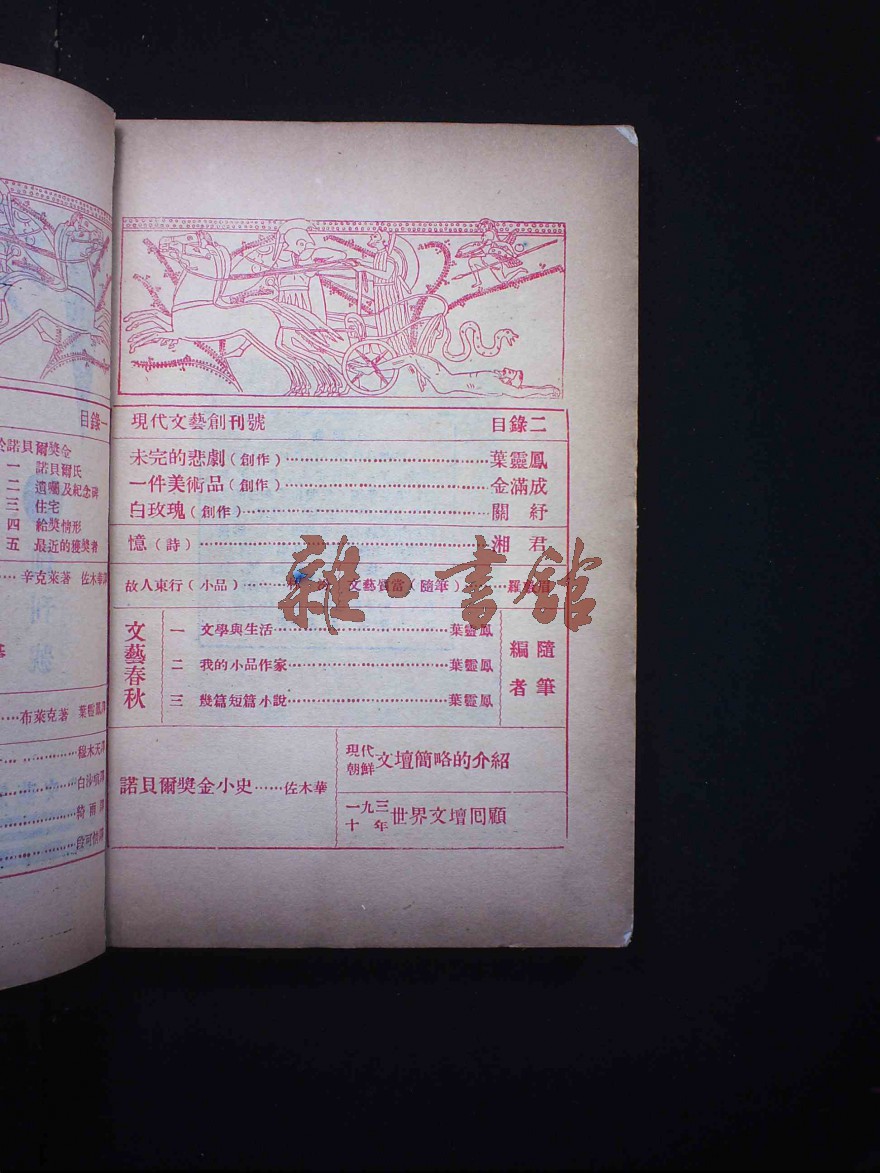 目錄一
於諾貝爾獎金
一 諾貝爾氏
二 遺囑及紀念碑
三 住宅
四 給獎情形
五 最近的獲獎者
辛克萊著 佐木華譯
布萊克著 葉靈鳳譯
穆木天譯
白沙
綺雨譯
段可情譯
現代文藝創刊號 目錄二
未完的悲劇(創作)……葉靈鳳
一件美術品(創作)……金滿成
白玫瑰(創作)……關紓
憶(詩)……湘君
故人東行(小品)……
文藝賓當(隨筆)……羅
文藝春秋
一 文學與生活……葉靈鳳
二 我的小品作家……葉靈鳳
三 幾篇短篇小說……葉靈鳳
編者隨筆
諾貝爾獎金小史……佐木華
現代朝鮮文壇簡略的介紹
一九三十年世界文壇回顧
雜·書館